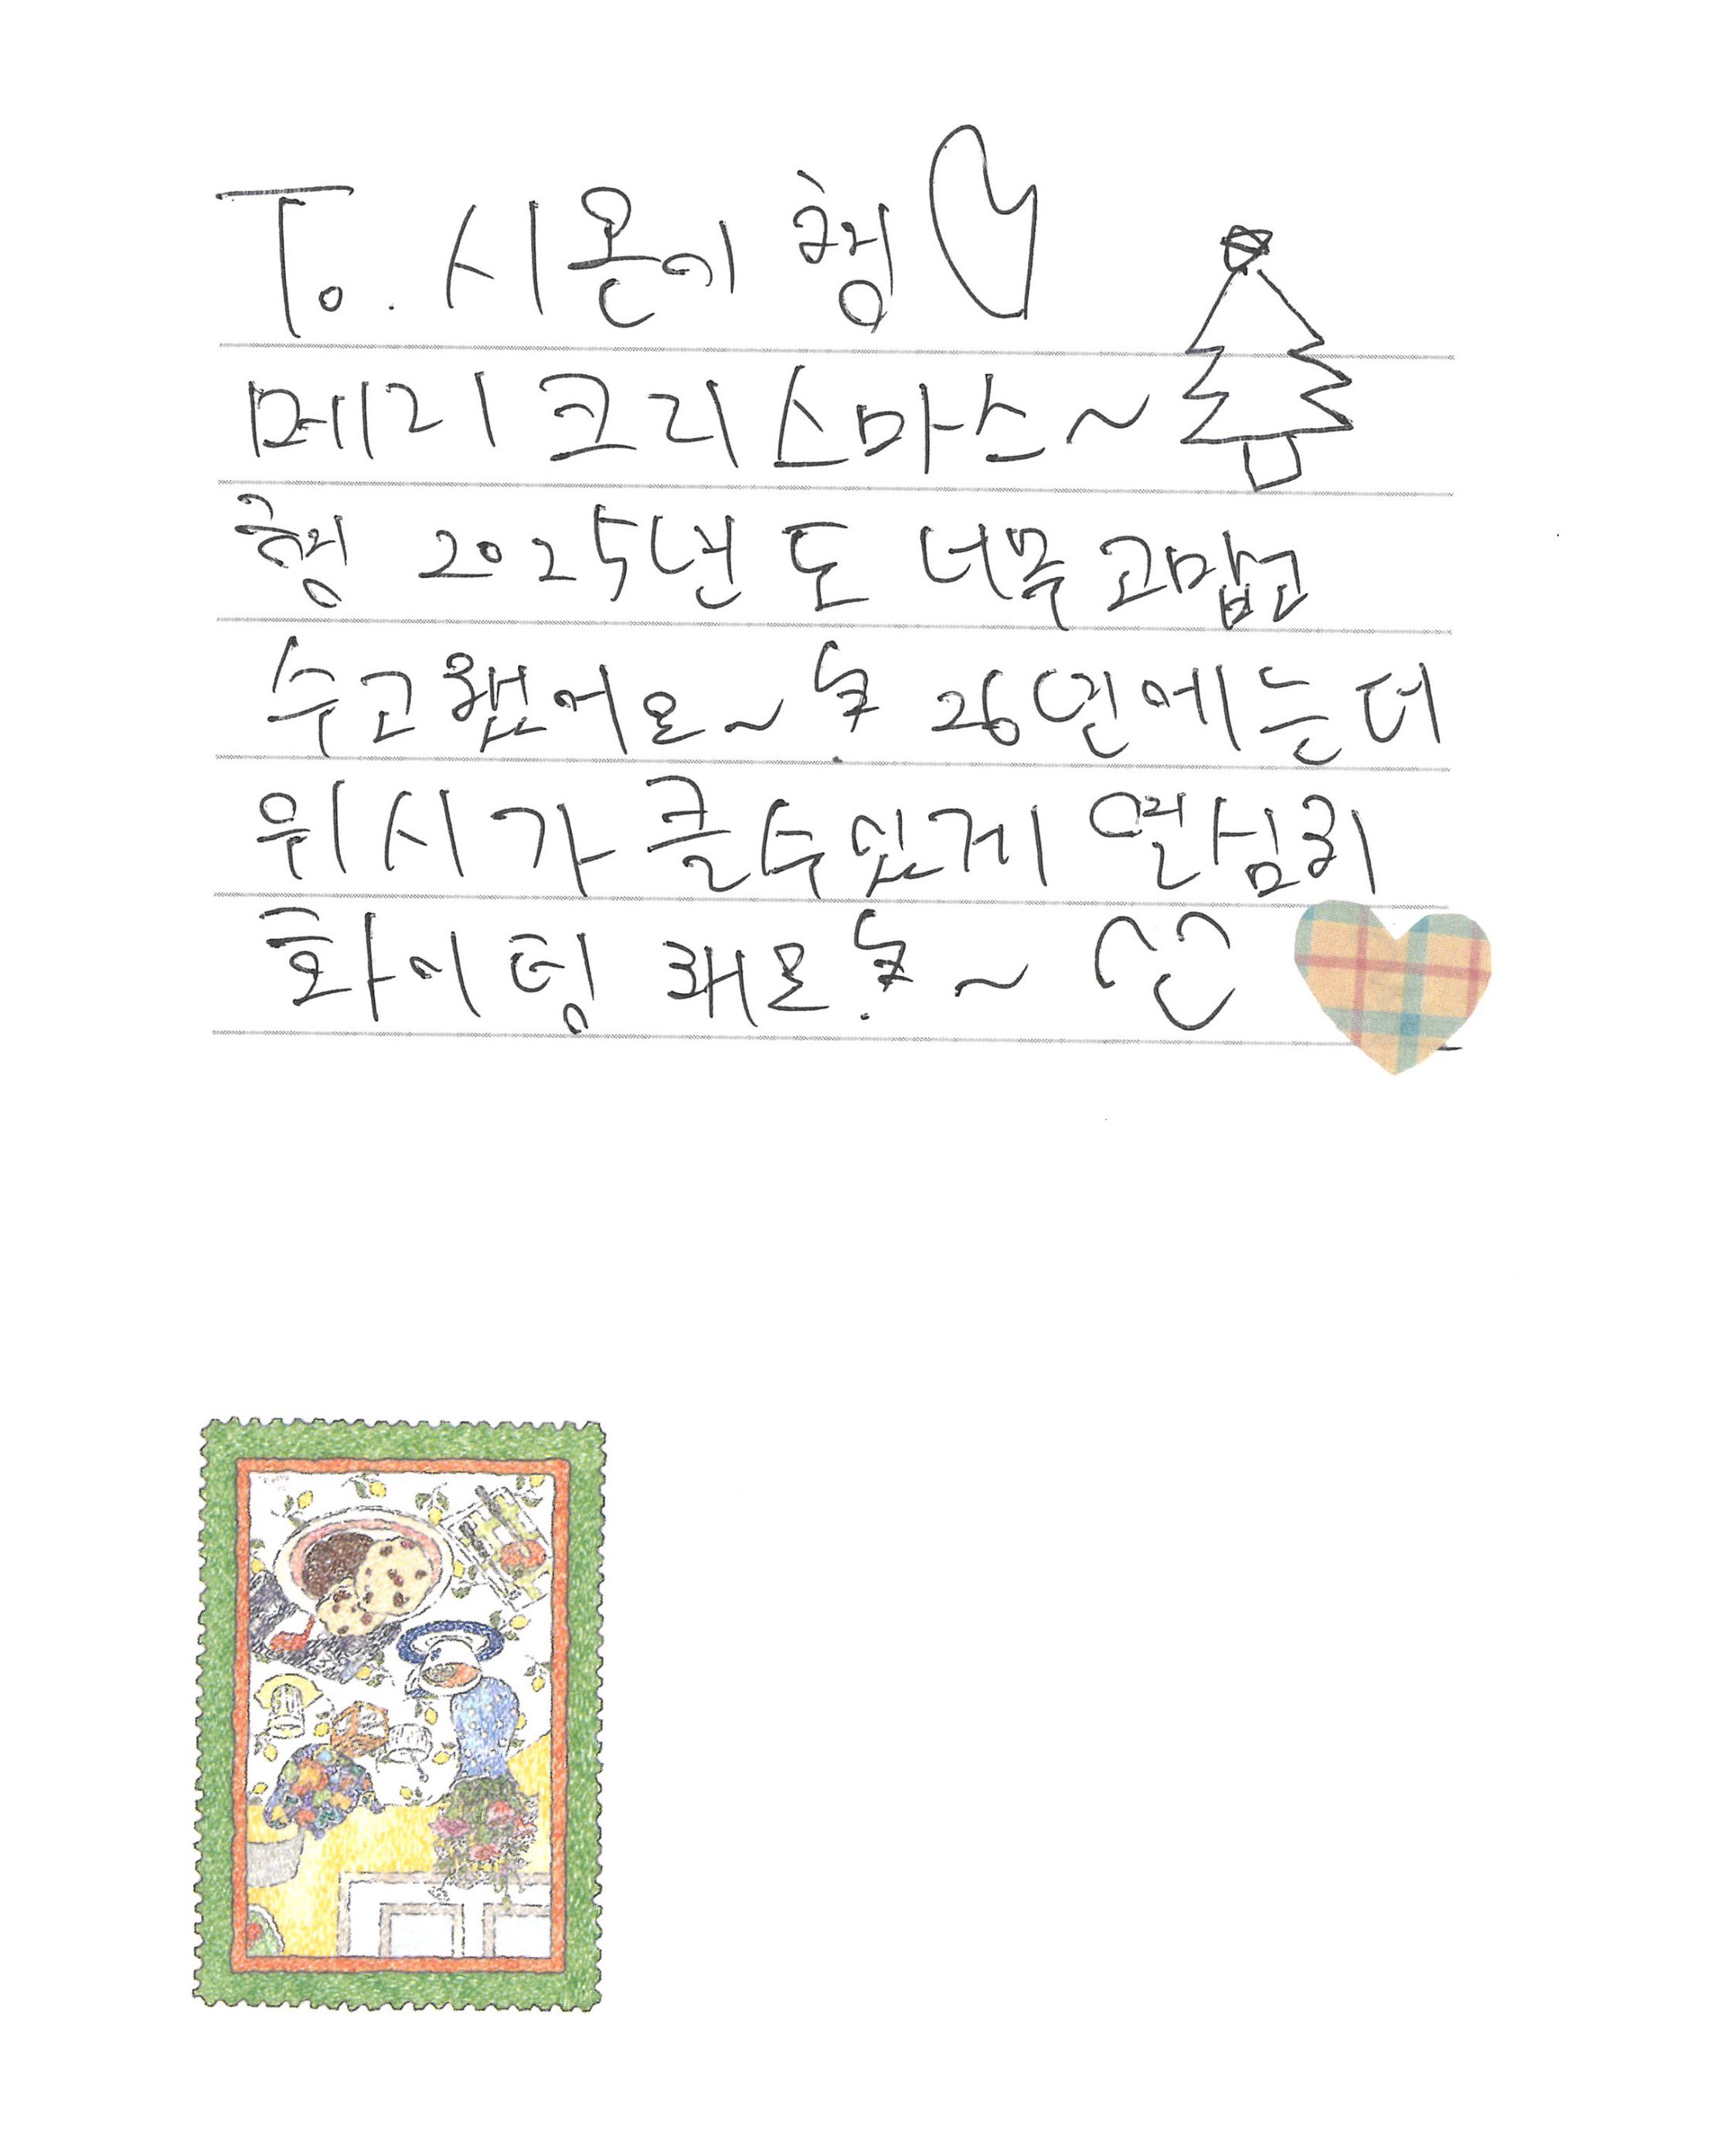 To. 시온이 형
메리크리스마스~
형 2025년도 너무 고맙고
수고했어요~ 26년에는 더
위시가 클수있게 열심히
화이팅해요!~